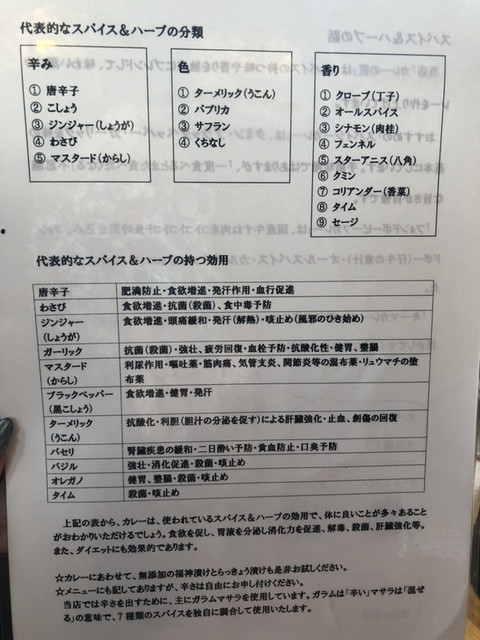 代表的なスパイス＆ハーブの分類
辛み
① 唐辛子
② こしょう
③ ジンジャー(しょうが)
④ わさび
⑤ マスタード(からし)
色
① ターメリック(うこん)
② パプリカ
③ サフラン
④ くちなし
香り
① クローブ(丁子)
② オールスパイス
③ シナモン(肉桂)
④ フェンネル
⑤ スターアニス(八角)
⑥ クミン
⑦ コリアンダー(香菜)
⑧ タイム
⑨ セージ
代表的なスパイス＆ハーブの持つ効用
唐辛子 肥満防止・食欲増進・発汗作用・血行促進
わさび 食欲増進・抗菌(殺菌)、食中毒予防
ジンジャー 食欲増進・頭痛緩和・発汗(解熱)・咳止め(風邪のひき始め)
(しょうが)
ガーリック 抗菌(殺菌)・強壮、疲労回復・血栓予防・抗酸化性・健胃、整腸
マスタード 利尿作用・嘔吐薬・筋肉痛、気管支炎、関節炎等の湿布薬・リュウマチの塗
(からし) 布薬
ブラックペッパー 食欲増進・健胃・発汗
(黒こしょう)
ターメリック 抗酸化・利胆(胆汁の分泌を促す)による肝臓強化・止血、創傷の回復
(うこん)
パセリ 腎臓疾患の緩和・二日酔い予防・貧血防止・口臭予防
バジル 強壮・消化促進・殺菌・咳止め
オレガノ 健胃、整腸・殺菌・咳止め
タイム 殺菌・咳止め
上記の表から、カレーは、使われているスパイス＆ハーブの効用で、体に良いことが多々あること
がおわかりいただけるでしょう。食欲を促し、胃液を分泌し消化力を促進、解毒、殺菌、肝臓強化等。
また、ダイエットにも効果的であります。
☆カレーにあわせて、無添加の福神漬けとらっきょう漬けも是非お試しください。
☆メニューにも記してありますが、辛さは自由にお申し付けください。
当店では辛さを出すために、主にガラムマサラを使用しています。ガラムは「辛い」マサラは「混ぜ
る」の意味で、7 種類のスパイスを独自に調合して使用いたします。